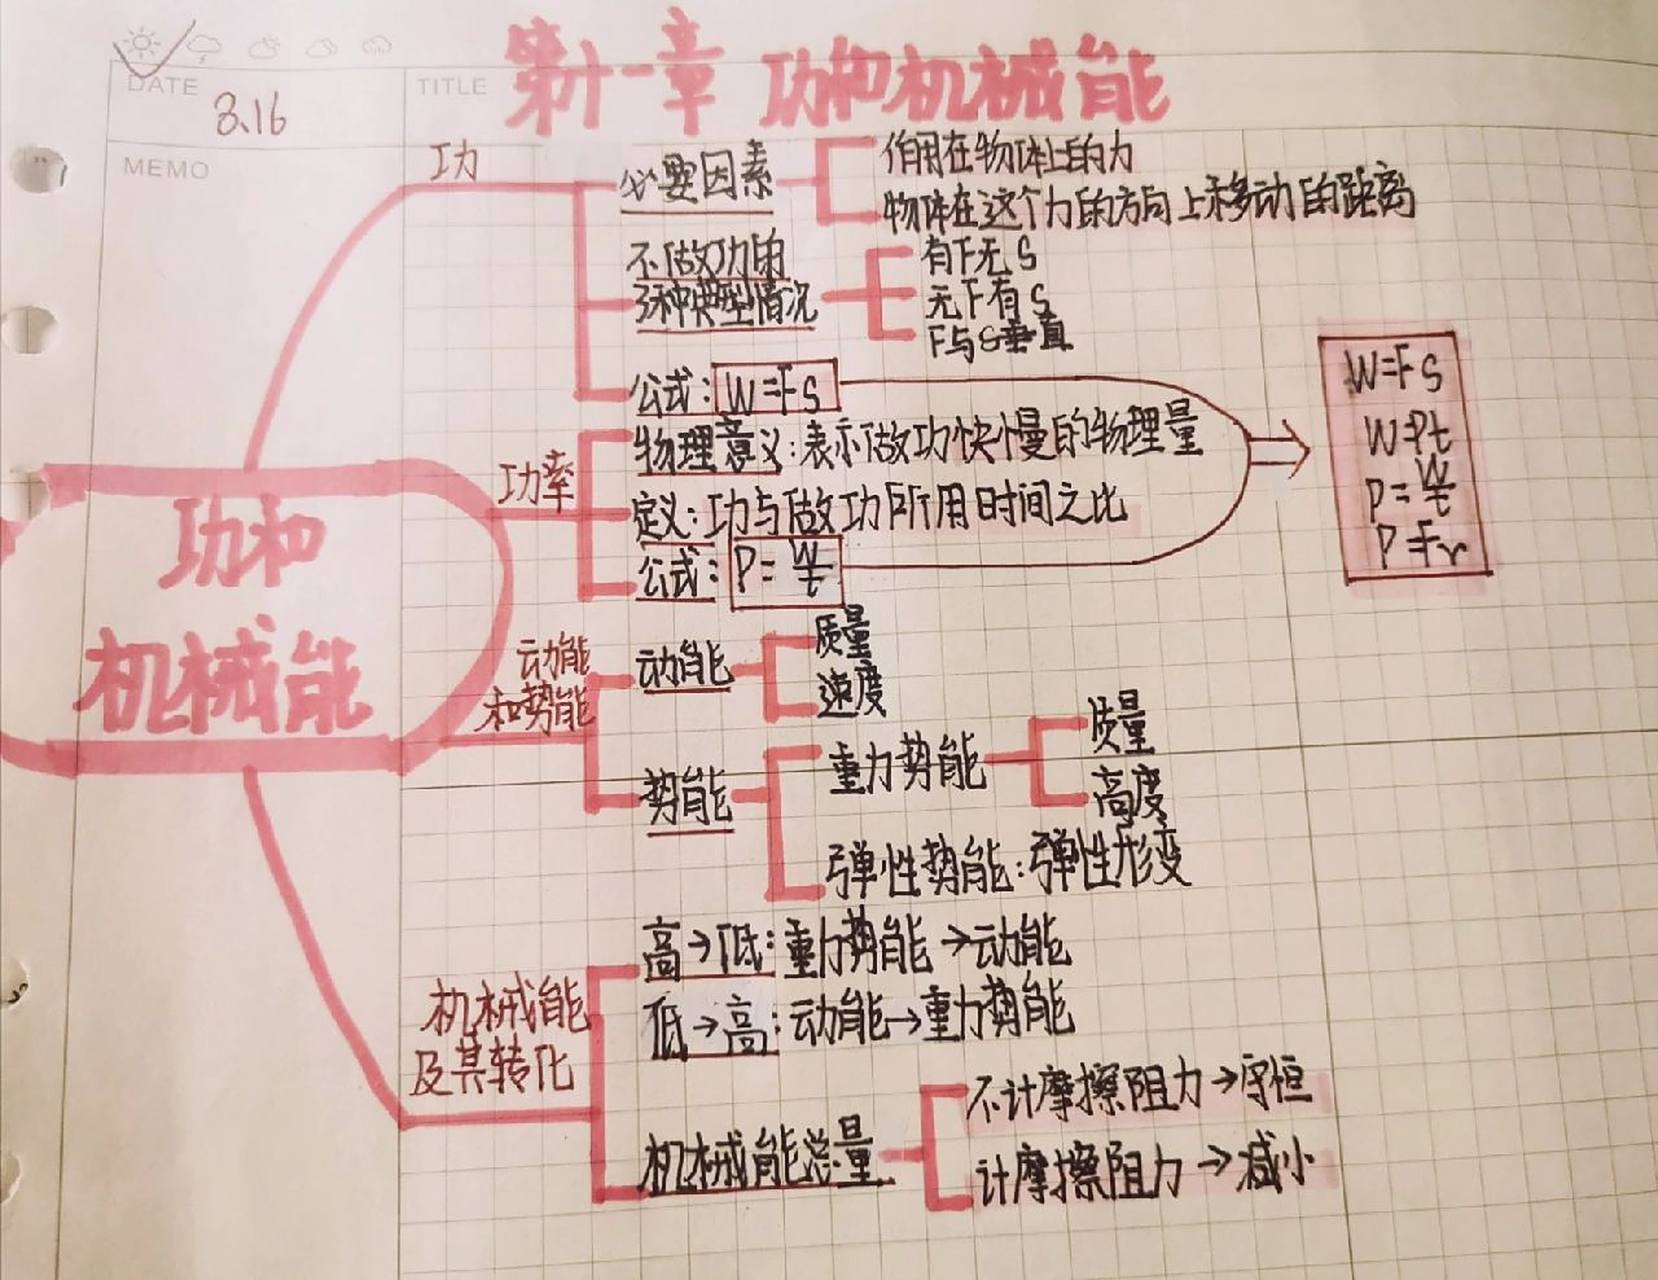 DATE 3.16
TITLE 第十一章 功和机械能
MEMO
功和
机械能
功
必要因素
作用在物体上的力
物体在这个力的方向上移动的距离
不做功的
3种典型情况
有F无S
无F有S
F与S垂直
公式: W=Fs
功率
物理意义:表示做功快慢的物理量
定义:功与做功所用时间之比
公式: P=W/t
W=Fs
W=Pt
P=W/t
P=Fv
动能
和势能
动能
质量
速度
势能
重力势能
质量
高度
弹性势能:弹性形变
机械能
及其转化
高→低:重力势能→动能
低→高:动能→重力势能
机械能总量
不计摩擦阻力→守恒
计摩擦阻力→减小